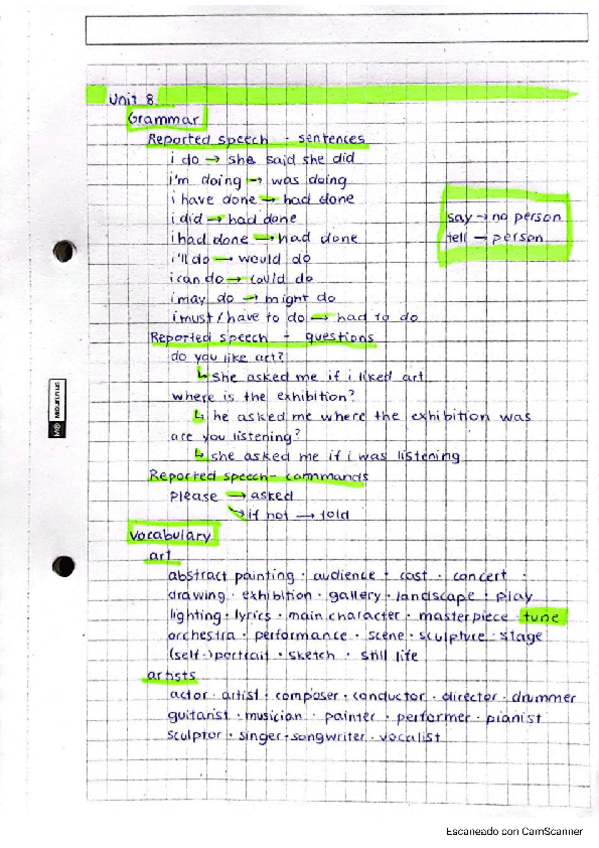 Unit 8
Grammar
Reported speech - sentences
i do → she said she did
i'm doing → was doing
i have done → had done
say → no person
i did → had done
i had done → had done
tell → person
i'll do → would do
i can do → could do
i may do → might do
i must/have to do → had to do
Reported speech - questions
do you like art?
↳ she asked me if i liked art
where is the exhibition?
↳ he asked me where the exhibition was
are you listening?
↳ she asked me if i was listening
Reported speech - commands
please → asked
↘ if not → told
Vocabulary
art
abstract painting · audience · cast · concert ·
drawing · exhibition · gallery · landscape · play
lighting · lyrics · main character · masterpiece · tune
orchestra · performance · scene · sculpture · stage
(self-)portrait · sketch · still life
artists
actor · artist · composer · conductor · director · drummer
guitarist · musician · painter · performer · pianist
sculptor · singer-songwriter · vocalist
Escaneado con CamScanner